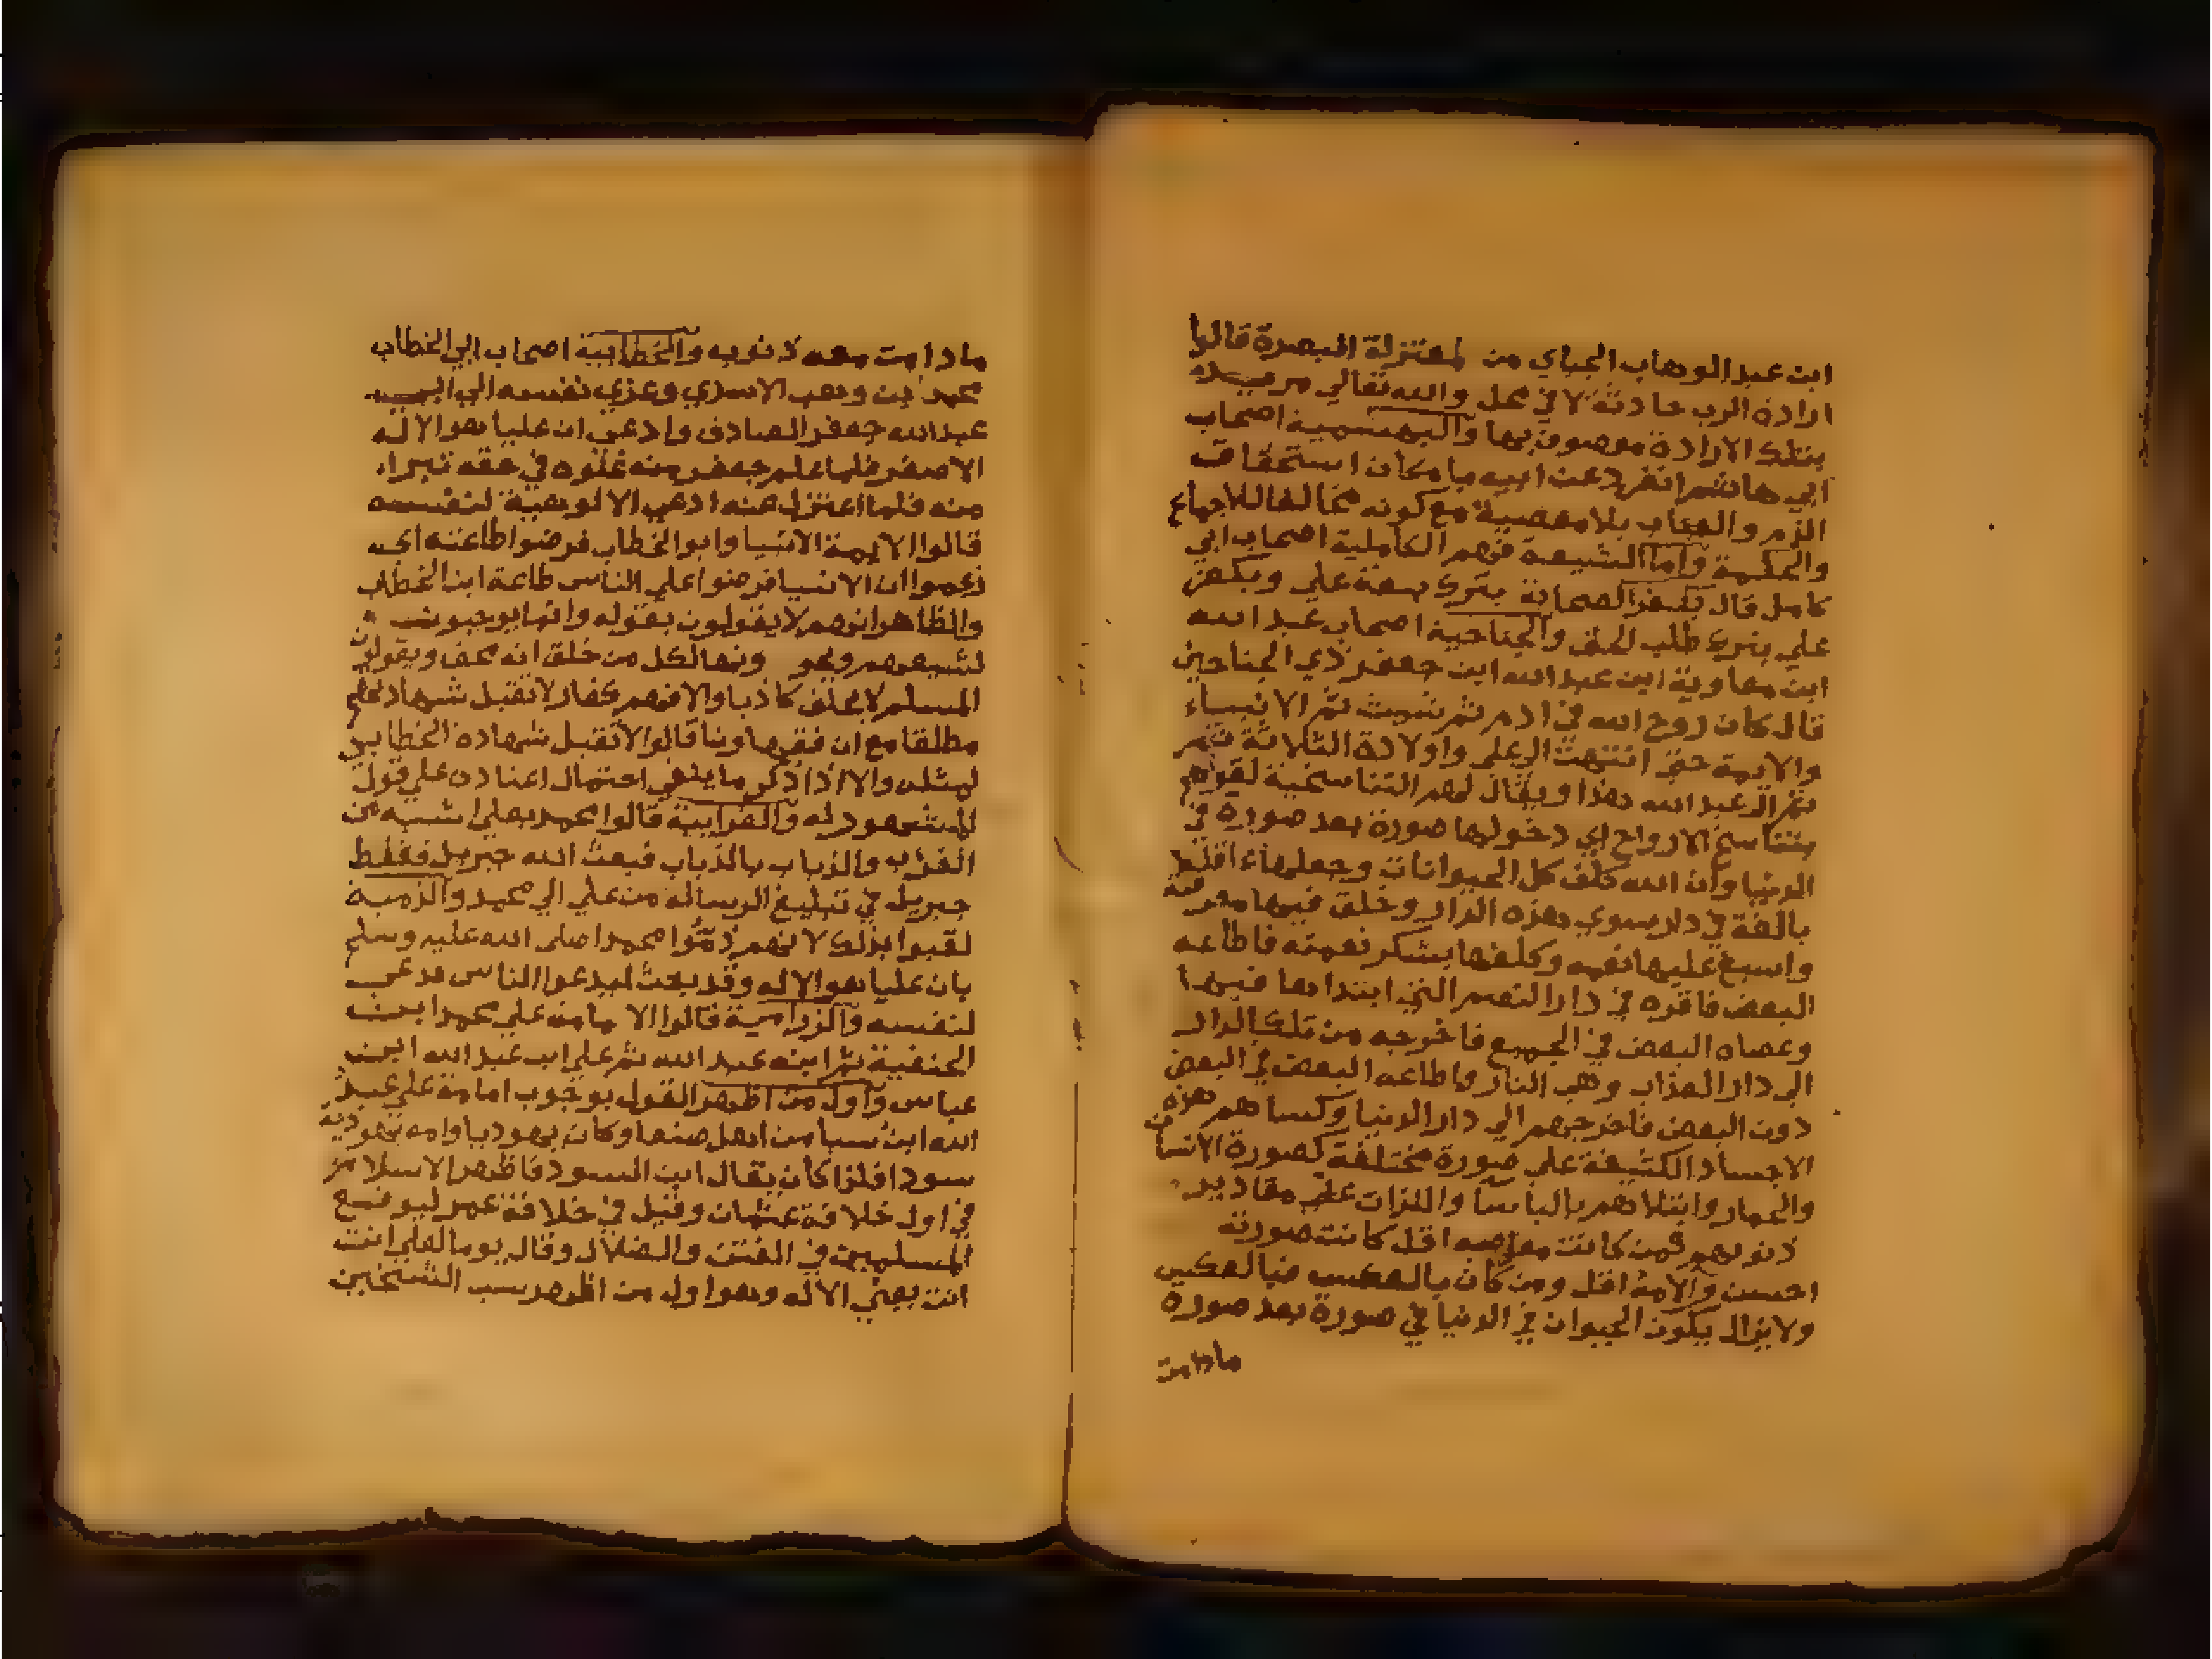 ابن عبد الوهاب الجباي من لمعتزلة البصرة قالوا
ارادة الرب حادثة لا في محل والله تعالي مريد
بتلك الارادة موصوف بها والبهشمية اصحاب
ابي هاشم انفرد عن ابيه بامكان استحقاق
الذم والعقاب بلا معصية مع كونه مخالفا للاجماع
والحكمة واما الشيعة فمنهم الكاملية اصحاب ابي
كامل قال بكفر الصحابة بترك بيعة علي وبكفر
علي بترك طلب الحق والجناحية اصحاب عبد الله
ابن معاوية ابن عبد الله ابن جعفر ذي الجناحين
قال كان روح الله في ادم ثم شيث ثم الانبياء
والايمة حتى انتهت الى علي واولادة الثلاثة ثم
ثم الى عبد الله هذا ويقال لهم التناسخية لقولهم
بتناسخ الارواح اي دخولها صورة بعد صورة في
الدنيا وان الله كلف كل الحيوانات وجعلها
بالغة في دار سوي هذه الدار وخلق فيها معرفته
واسبغ عليها نعمه وكلفها بشكر نعمته فاطاعه
البعض فاقره في دار النعيم التي ابتداها فيها
وعصاه البعض في الجميع فاخرجه من تلك الدار
الي دار العذاب وهي النار واطاعه البعض في البعض
دون البعض فاخرجهم الي دار الدنيا وكساهم هذه
الاجساد الكثيفة علي صورة مختلفة كصورة الانسان
والحمار وابتلاهم بالباسا واللذات علي مقادير
ذنوبهم فمن كانت معاصيه اقل كانت صورته
احسن والامه اقل ومن كان بالعكس فبالعكس
ولا يزال يكون الحيوان في الدنيا في صورة بعد صورة
مادامت
مادامت معه ذنوبه والخطابية اصحاب ابي الخطاب
محمد بن وهب الاسدي وعزي نفسه الي ابي
عبد الله جعفر الصادق وادعي ان عليا هو الاله
الاصغر فلما علم جعفر منه غلوه في حقه تبراء
منه فلما اعتزل عنه ادعي الالوهية لنفسه
قالوا الايمة الانبيا وابو الخطاب فرضوا طاعته اي
زعموا ان الانبيا فرضوا علي الناس طاعة ابن الخطاب
والظاهر انهم لا يقولون بقوله وانما يوجبون
لشيعتهم ونحو ونها لكل من خلق انه محق ويقولون
المسلم لا يحلف كاذبا والا فهم كفار لا تقبل شهادتهم
مطلقا مع ان فقهاونا قالوا لا تقبل شهادة الخطابي
لمثله والا اذا ذكر ما ينفي احتمال اعتاده علي قول
المشهود له والغرابية قالوا محمد بعلي اشبه من
الغراب والذباب بالذباب فبعث الله جبريل فغلط
جبريل في تبليغ الرسالة من علي الي محمد والذمية
لقبوا بذلك لانهم ذموا محمدا صلى الله عليه وسلم
بان عليا هو الاله وقد بعث ليدعو الناس فدعي
لنفسه والزرامية قالوا الامامة علي محمد ابن
الحنفية ثم ابنه عبد الله ثم علي اب عبد الله ابن
عباس واول من اظهر القول بوجوب امامة علي عبد
الله ابن سبا من اهل صنعا وكان يهوديا وامه يهودية
سودا فلذا كان يقال ابن السود فاظهر الاسلام
في اول خلافة عثمان وقيل في خلافة عمر ليوقع
المسلمين في الفتن والضلال وقال يوما لعلي انت
انت يعني الاله وهو اول من اظهر سب الشيخين